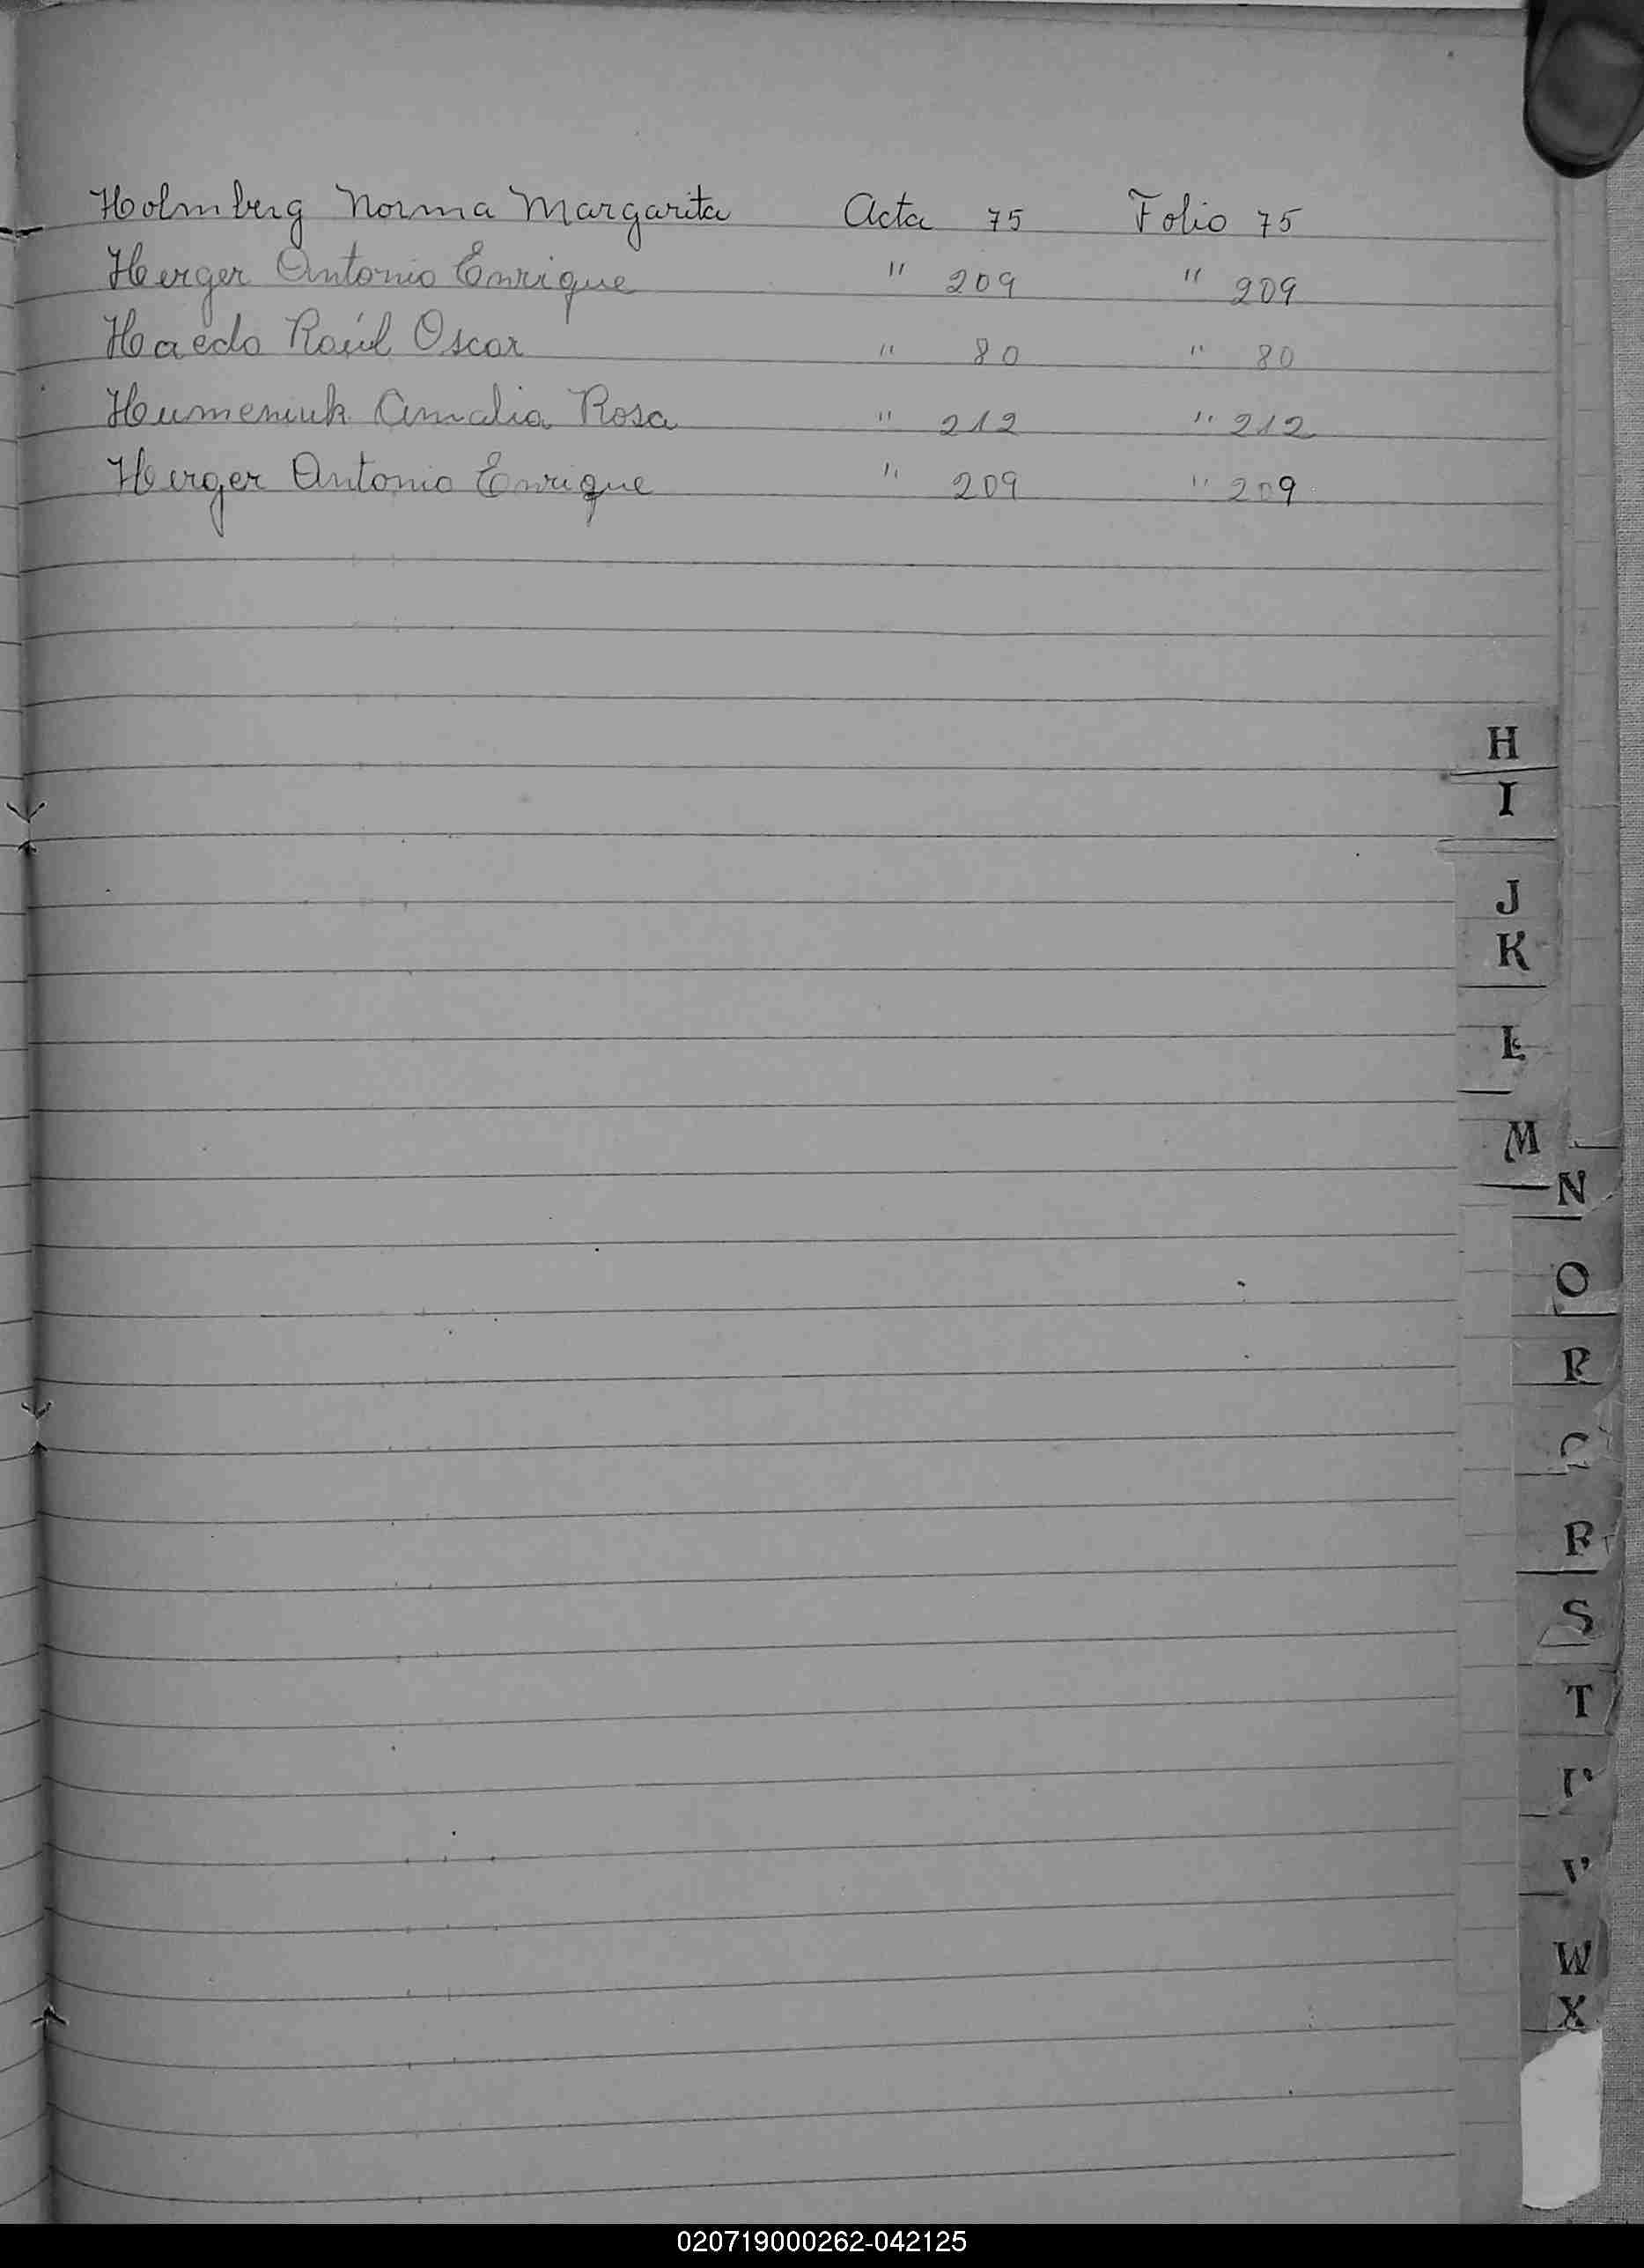 Holmberg Norma Margarita Acta 75 Folio 75
Herger Antonio Enrique " 209 " 209
Haedo Raúl Oscar " 80 " 80
Humeniuk Amalia Rosa " 212 " 212
Herger Antonio Enrique " 209 " 209
H
I
J
K
L
M
N
O
P
Q
R
S
T
V
W
X
020719000262-042125